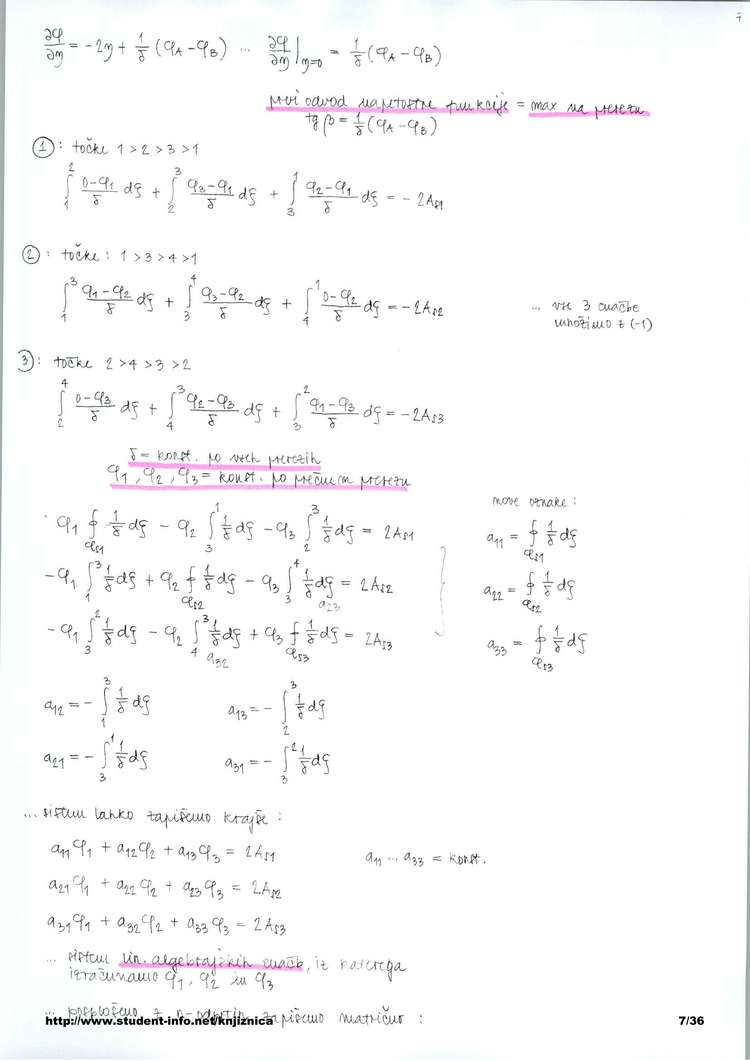 ∂φ/∂η = -2η + 1/δ (φA - φB) ... ∂φ/∂η |η=0 = 1/δ (φA - φB)
prvi odvod napetostne funkcije = max na prerezu
tg β = 1/δ (φA - φB)
①: točke 1 > 2 > 3 > 1
∫₁² (0-φ1)/δ dξ + ∫₂³ (φ3-φ1)/δ dξ + ∫₃¹ (φ2-φ1)/δ dξ = - 2As1
②: točke: 1 > 3 > 4 > 1
∫₁³ (φ1-φ2)/δ dξ + ∫₃⁴ (φ3-φ2)/δ dξ + ∫₄¹ (0-φ2)/δ dξ = - 2As2
... vse 3 enačbe
množimo z (-1)
③: točke 2 > 4 > 3 > 2
∫₂⁴ (0-φ3)/δ dξ + ∫₄³ (φ2-φ3)/δ dξ + ∫₃² (φ1-φ3)/δ dξ = - 2As3
δ = konst. po vseh prerezih
φ1, φ2, φ3 = konst. po prečnem prerezu
nove oznake:
φ1 ∮φs1 1/δ dξ - φ2 ∫₃¹ 1/δ dξ - φ3 ∫₂³ 1/δ dξ = 2As1
a11 = ∮φs1 1/δ dξ
-φ1 ∫₁³ 1/δ dξ + φ2 ∮φs2 1/δ dξ - φ3 ∫₃⁴ 1/δ dξ = 2As2
a23
a22 = ∮φs2 1/δ dξ
-φ1 ∫₃² 1/δ dξ - φ2 ∫₄³ 1/δ dξ + φ3 ∮φs3 1/δ dξ = 2As3
a32
a33 = ∮φs3 1/δ dξ
a12 = - ∫₁³ 1/δ dξ a13 = - ∫₂³ 1/δ dξ
a21 = - ∫₃¹ 1/δ dξ a31 = - ∫₃² 1/δ dξ
... sistem lahko zapišemo krajše:
a11φ1 + a12φ2 + a13φ3 = 2As1 a11 ... a33 = konst.
a21φ1 + a22φ2 + a23φ3 = 2As2
a31φ1 + a32φ2 + a33φ3 = 2As3
... sistem lin. algebrajskih enačb, iz katerega
izračunamo φ1, φ2 in φ3
... zapišemo matrično:
http://www.student-info.net/knjiznica 7/36